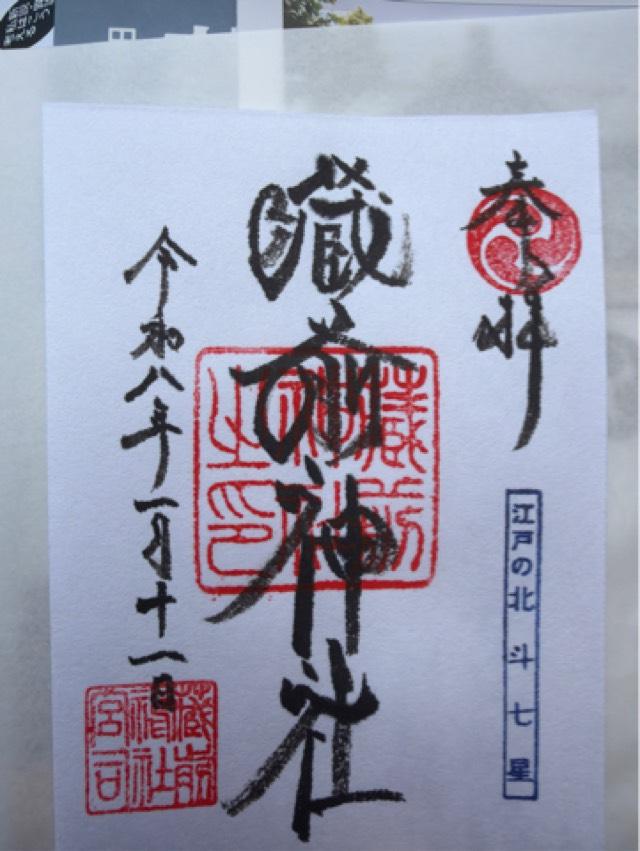 奉拝
江戸の北斗七星
蔵前神社
蔵前神社之印
令和八年一月十一日
蔵前神社宮司